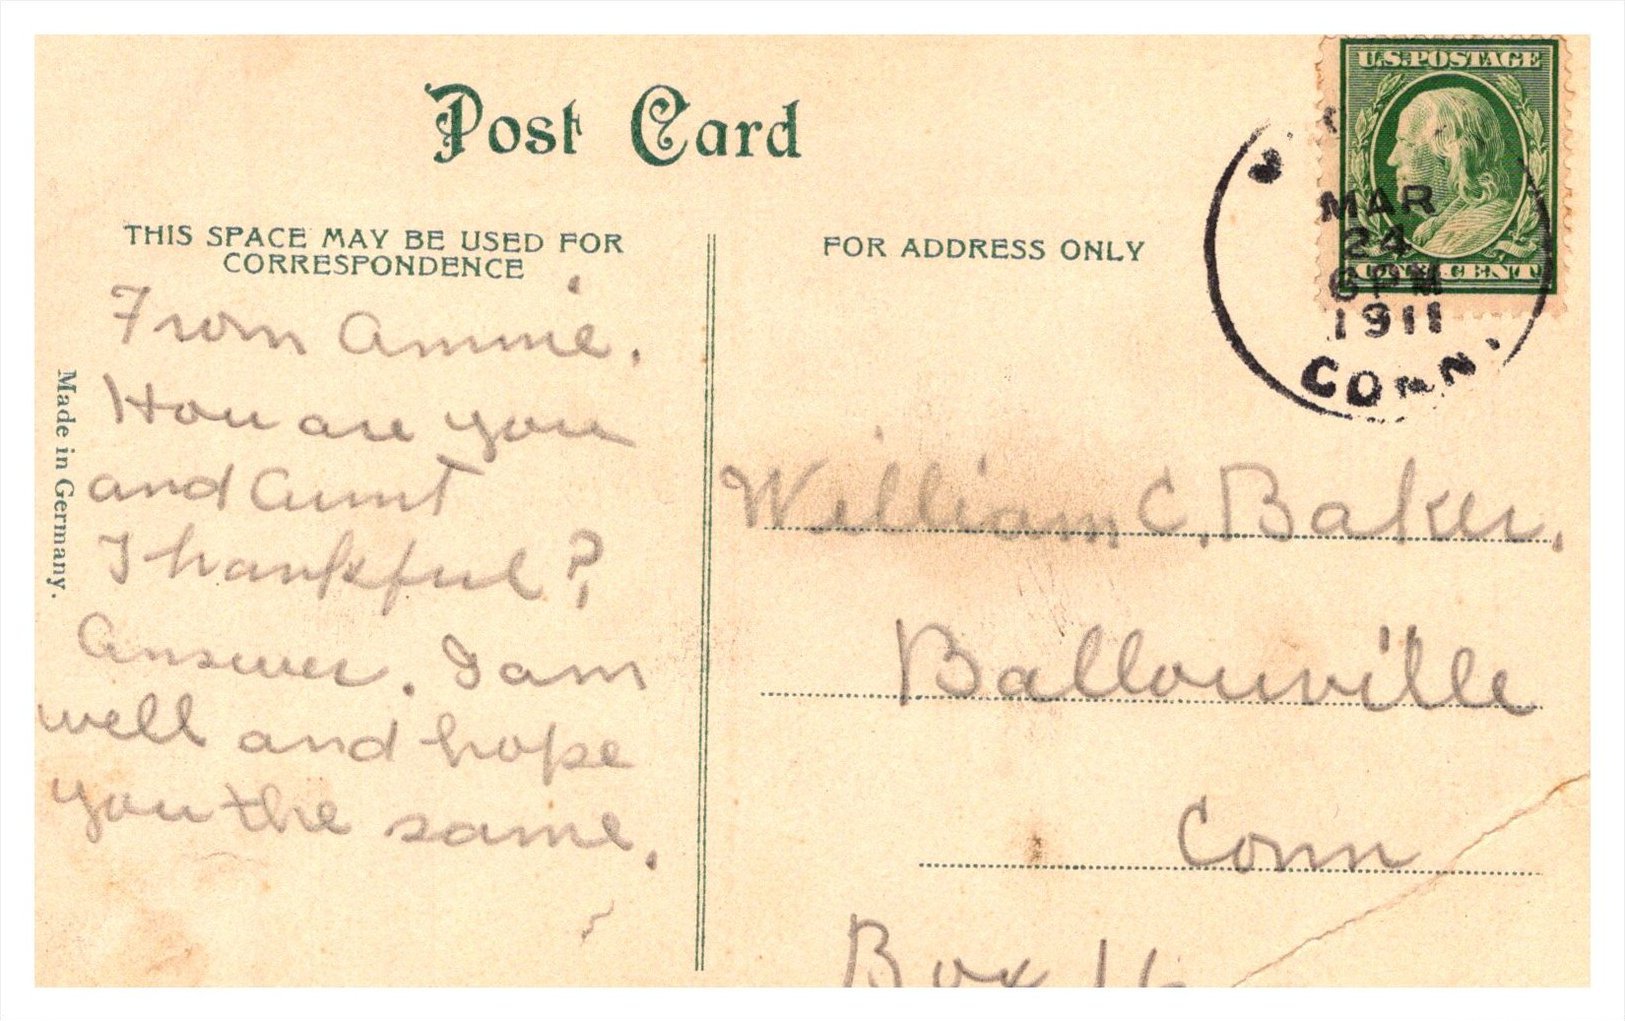 Post Card
THIS SPACE MAY BE USED FOR
CORRESPONDENCE
FOR ADDRESS ONLY
U.S. POSTAGE
MAR
24
6 PM
1911
CONN.
Made in Germany.
From Annie.
How are you
and Aunt
Thankful?
Answer. I am
well and hope
you the same.
William C. Baker.
Ballouville
Conn
Box 16